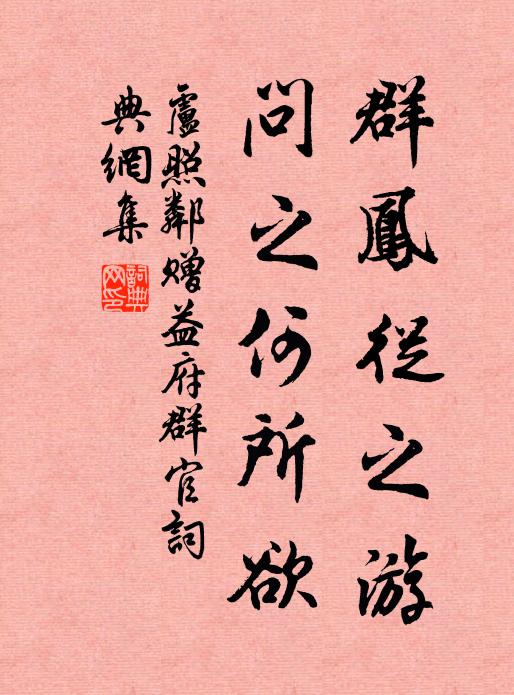 群鳳從之游
問之何所欲
盧照鄰贈益府群官詞
典網集
詞典網印